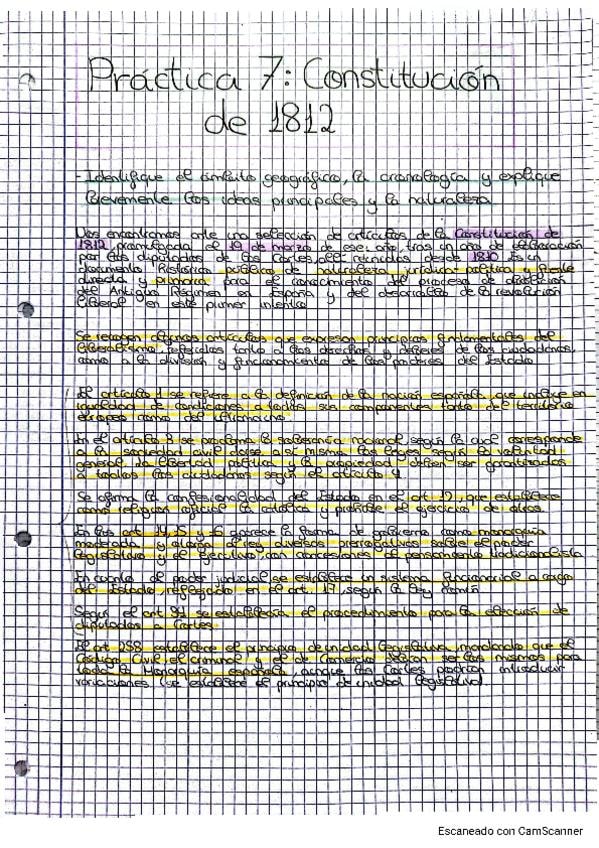 Práctica 7: Constitución
de 1812
- Identifique el ámbito geográfico, la cronología y explique
brevemente las ideas principales y la naturaleza
Nos encontramos ante una selección de artículos de la Constitución de
1812, promulgada el 19 de marzo de ese año, tras un año de deliberación
por los diputados de las Cortes, allí reunidas desde 1810. Es un
documento histórico, público de naturaleza jurídica-política y fuente
directa y primaria para el conocimiento del proceso de disolución
del Antiguo Régimen en España y del desarrollo de la revolución
liberal en este primer intento
Se recogen algunos artículos que expresan principios fundamentales del
liberalismo, referidos tanto a los derechos y deberes de los ciudadanos,
como a la división y funcionamiento de los poderes del Estado
El artículo 1 se refiere a la definición de la nación española, que incluye en
igualdad de condiciones a todos sus componentes tanto del territorio
europeo como del ultramarino.
En el artículo 3 se proclama la soberanía nacional, según la cual corresponde
a la sociedad civil darse a sí misma las leyes según la voluntad
general, la libertad política y la propiedad deben ser garantizadas
a todos los ciudadanos según el artículo 4
Se afirma la confesionalidad del Estado en el art. 12, que establece
como religión oficial la católica y prohíbe el ejercicio de otras.
En los art 14, 15 y 16 aparece la forma de gobierno como monarquía
moderada y otorga al rey diversas prerrogativas sobre el poder
legislativo y el ejecutivo, con concesiones al pensamiento tradicionalista
En cuanto al poder judicial se establece un sistema funcionarial a cargo
del Estado, reflejado en el art. 17, según la ley común
Según el art 91 se establecía el procedimiento para la elección de
diputados a Cortes.
El art 258 establece el principio de unidad legislativa, mandando que el
Código Civil, el criminal y el de Comercio fueran ser los mismos para
toda la Monarquía española, aunque las Cortes podrían introducir
variaciones. (se establece el principio de unidad legislativa)
Escaneado con CamScanner